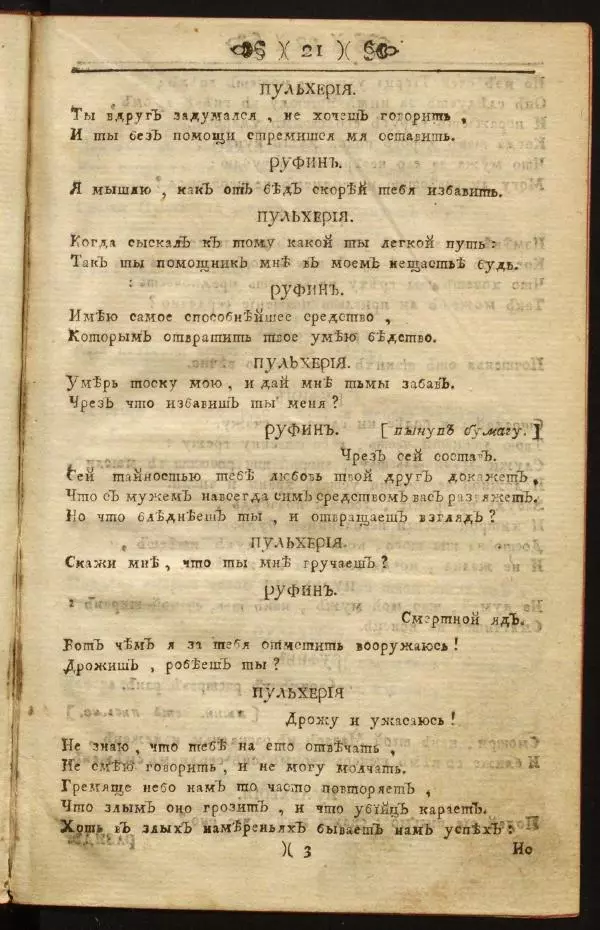 )( 21 )(
ПУЛЬХЕРІЯ.
Ты вдругъ задумался, не хочешъ говорить,
И ты безъ помощи стремишся мя оставить.
РУФИНЪ.
Я мышлю, какъ отъ бѣдъ скорѣй тебя избавить.
ПУЛЬХЕРІЯ.
Когда сыскалъ къ тому какой ты легкой путь:
Такъ ты помощникъ мнѣ въ моемъ нещастьѣ будь.
РУФИНЪ.
Имѣю самое способнѣйшее средство,
Которымъ отвратить твое умѣю бѣдство.
ПУЛЬХЕРІЯ.
Умѣрь тоску мою, и дай мнѣ тьмы забавъ.
Чрезъ что избавишъ ты меня?
РУФИНЪ. [вынувъ бумагу.]
Чрезъ сей составъ.
Сей тайностью тебѣ любовь твой другъ докажетъ,
Что съ мужемъ навсегда симъ средствомъ васъ развяжетъ.
Но что блѣднѣешъ ты, и отвращаешъ взглядъ?
ПУЛЬХЕРІЯ.
Скажи мнѣ, что ты мнѣ вручаешъ?
РУФИНЪ.
Смертной ядъ.
Вотъ чѣмъ я за тебя отмстить вооружаюсь!
Дрожишъ, робѣешъ ты?
ПУЛЬХЕРІЯ
Дрожу и ужасаюсь!
Не знаю, что тебѣ на ето отвѣчать,
Не смѣю говорить, и не могу молчать.
Гремяще небо намъ то часто повторяетъ,
Что злымъ оно грозитъ, и что убійцъ караетъ.
Хоть въ злыхъ намѣреньяхъ бываетъ намъ успѣхъ:
)( 3 Но